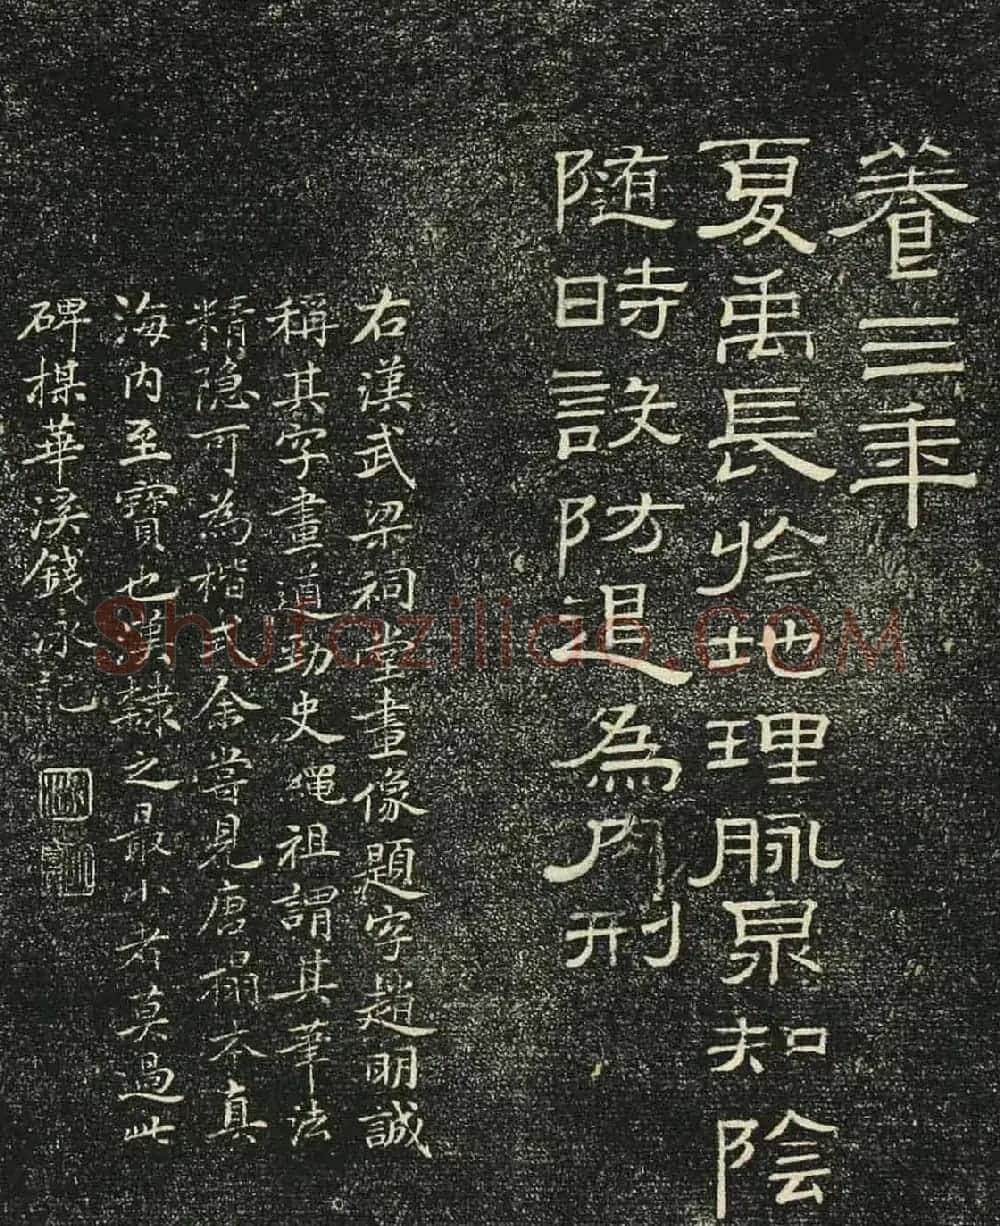 養三年
夏禹長於地理脉泉知陰
隨時設防退為肉刑
右漢武梁祠堂畫像題字趙明誠
稱其字畫遒勁史繩祖謂其筆法
精隱可為楷式余嘗見唐搨本真
海内至寶也漢隸之最小者莫過此
碑楳華溪錢泳記
Shufaziliao.COM